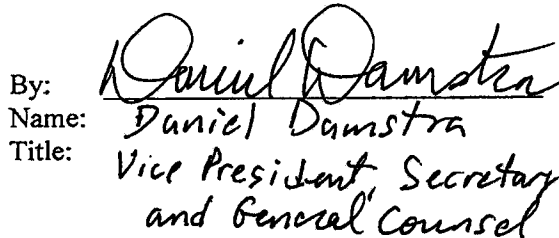 By: Daniel Damstra
Name: Daniel Damstra
Title: Vice President, Secretary
and General Counsel